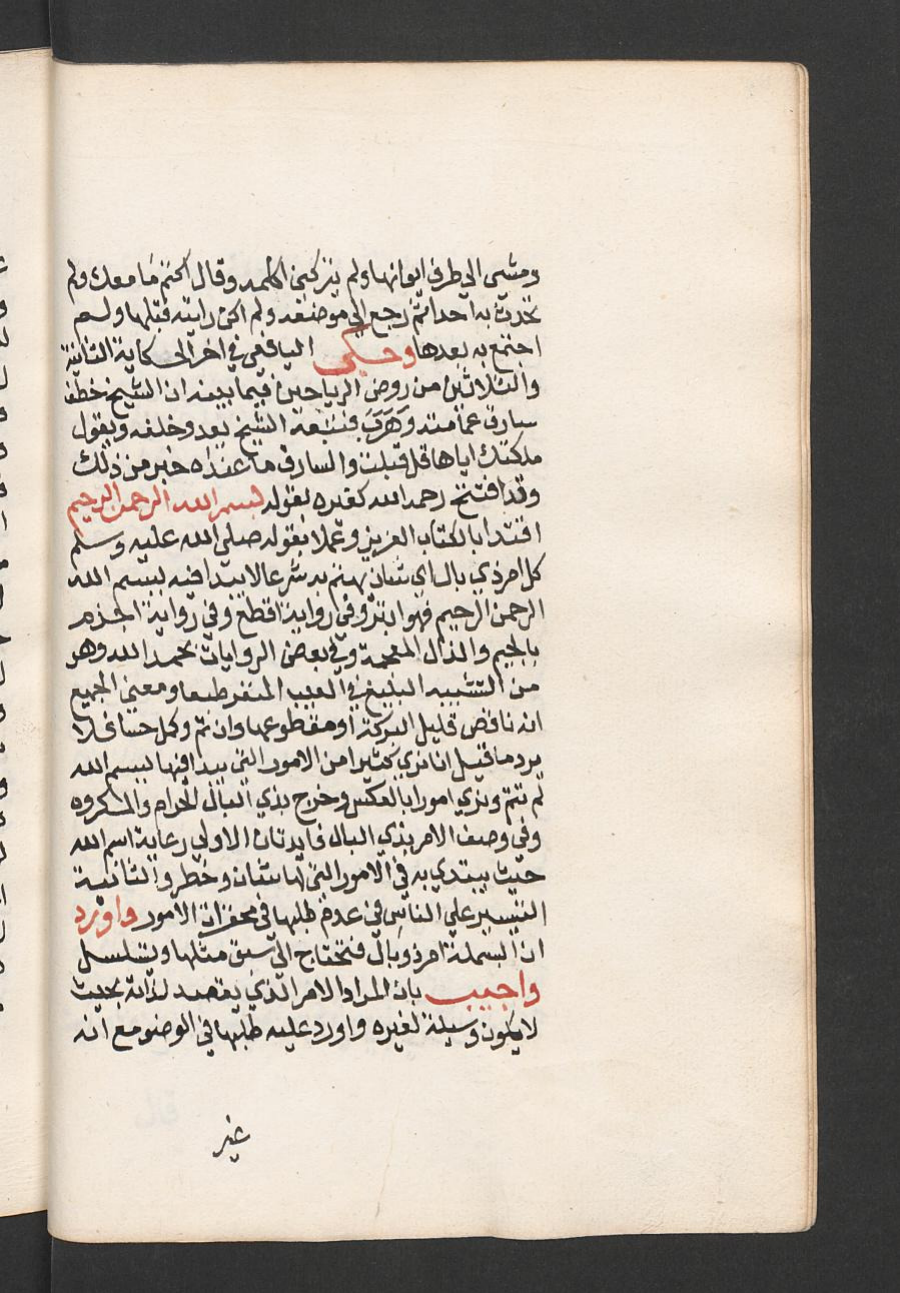 ومشى الي طرف ايوانها ولم يتركني اكلمه وقال اكتم ما معك ولم
تحدث به احدا ثم رجع الي موضعه ولم اكن رايته قبلها ولم
اجتمع به بعدها وحكي اليافعي في اخر الحكاية الثانية
والثلاثين من روض الرياحين فيما بيعه ان الشيخ خطف
سارق عمامته وهرب فتبعه الشيخ يعدو خلفه ويقول
ملكتك اياها قل قبلت والسارق ما عنده خبر من ذلك
وقد افتتح رحمه الله كغيره بقوله بسم الله الرحمن الرحيم
اقتدا بالكتاب العزيز وعملا بقوله صلي الله عليه وسلم
كل امر ذي بال اي شان يهتم به شرعا لا يبدا فيه ببسم الله
الرحمن الرحيم فهو ابتر وفي رواية اقطع وفي رواية اجذم
بالجيم والذال المعجمة وفي بعض الروايات بحمد الله وهو
من التشبيه البليغ في العيب المنفر طبعا ومعني الجميع
انه ناقص قليل البركة او مقطوعها وان تم وكمل حسا فلا
يرد ما قيل انا نري كثيرا من الامور التي يبدا فيها ببسم الله
لم تتم ونري امورا بالعكس وخرج بذي البال الحرام والمكروه
وفي وصف الامر بذي البال فايدتان الاولي رعاية اسم الله
حيث يبتدي به في الامور التي لها شان وخطر والثانية
التيسير علي الناس في عدم طلبها في محقرات الامور واورد
ان البسملة امر ذو بال فتحتاج الي سبق مثلها ويتسلسل
واجيب بان المراد الامر الذي يقصد لذاته بحيث
لا يكون وسيلة لغيره واورد عليه طلبها في الوضو مع انه
غير